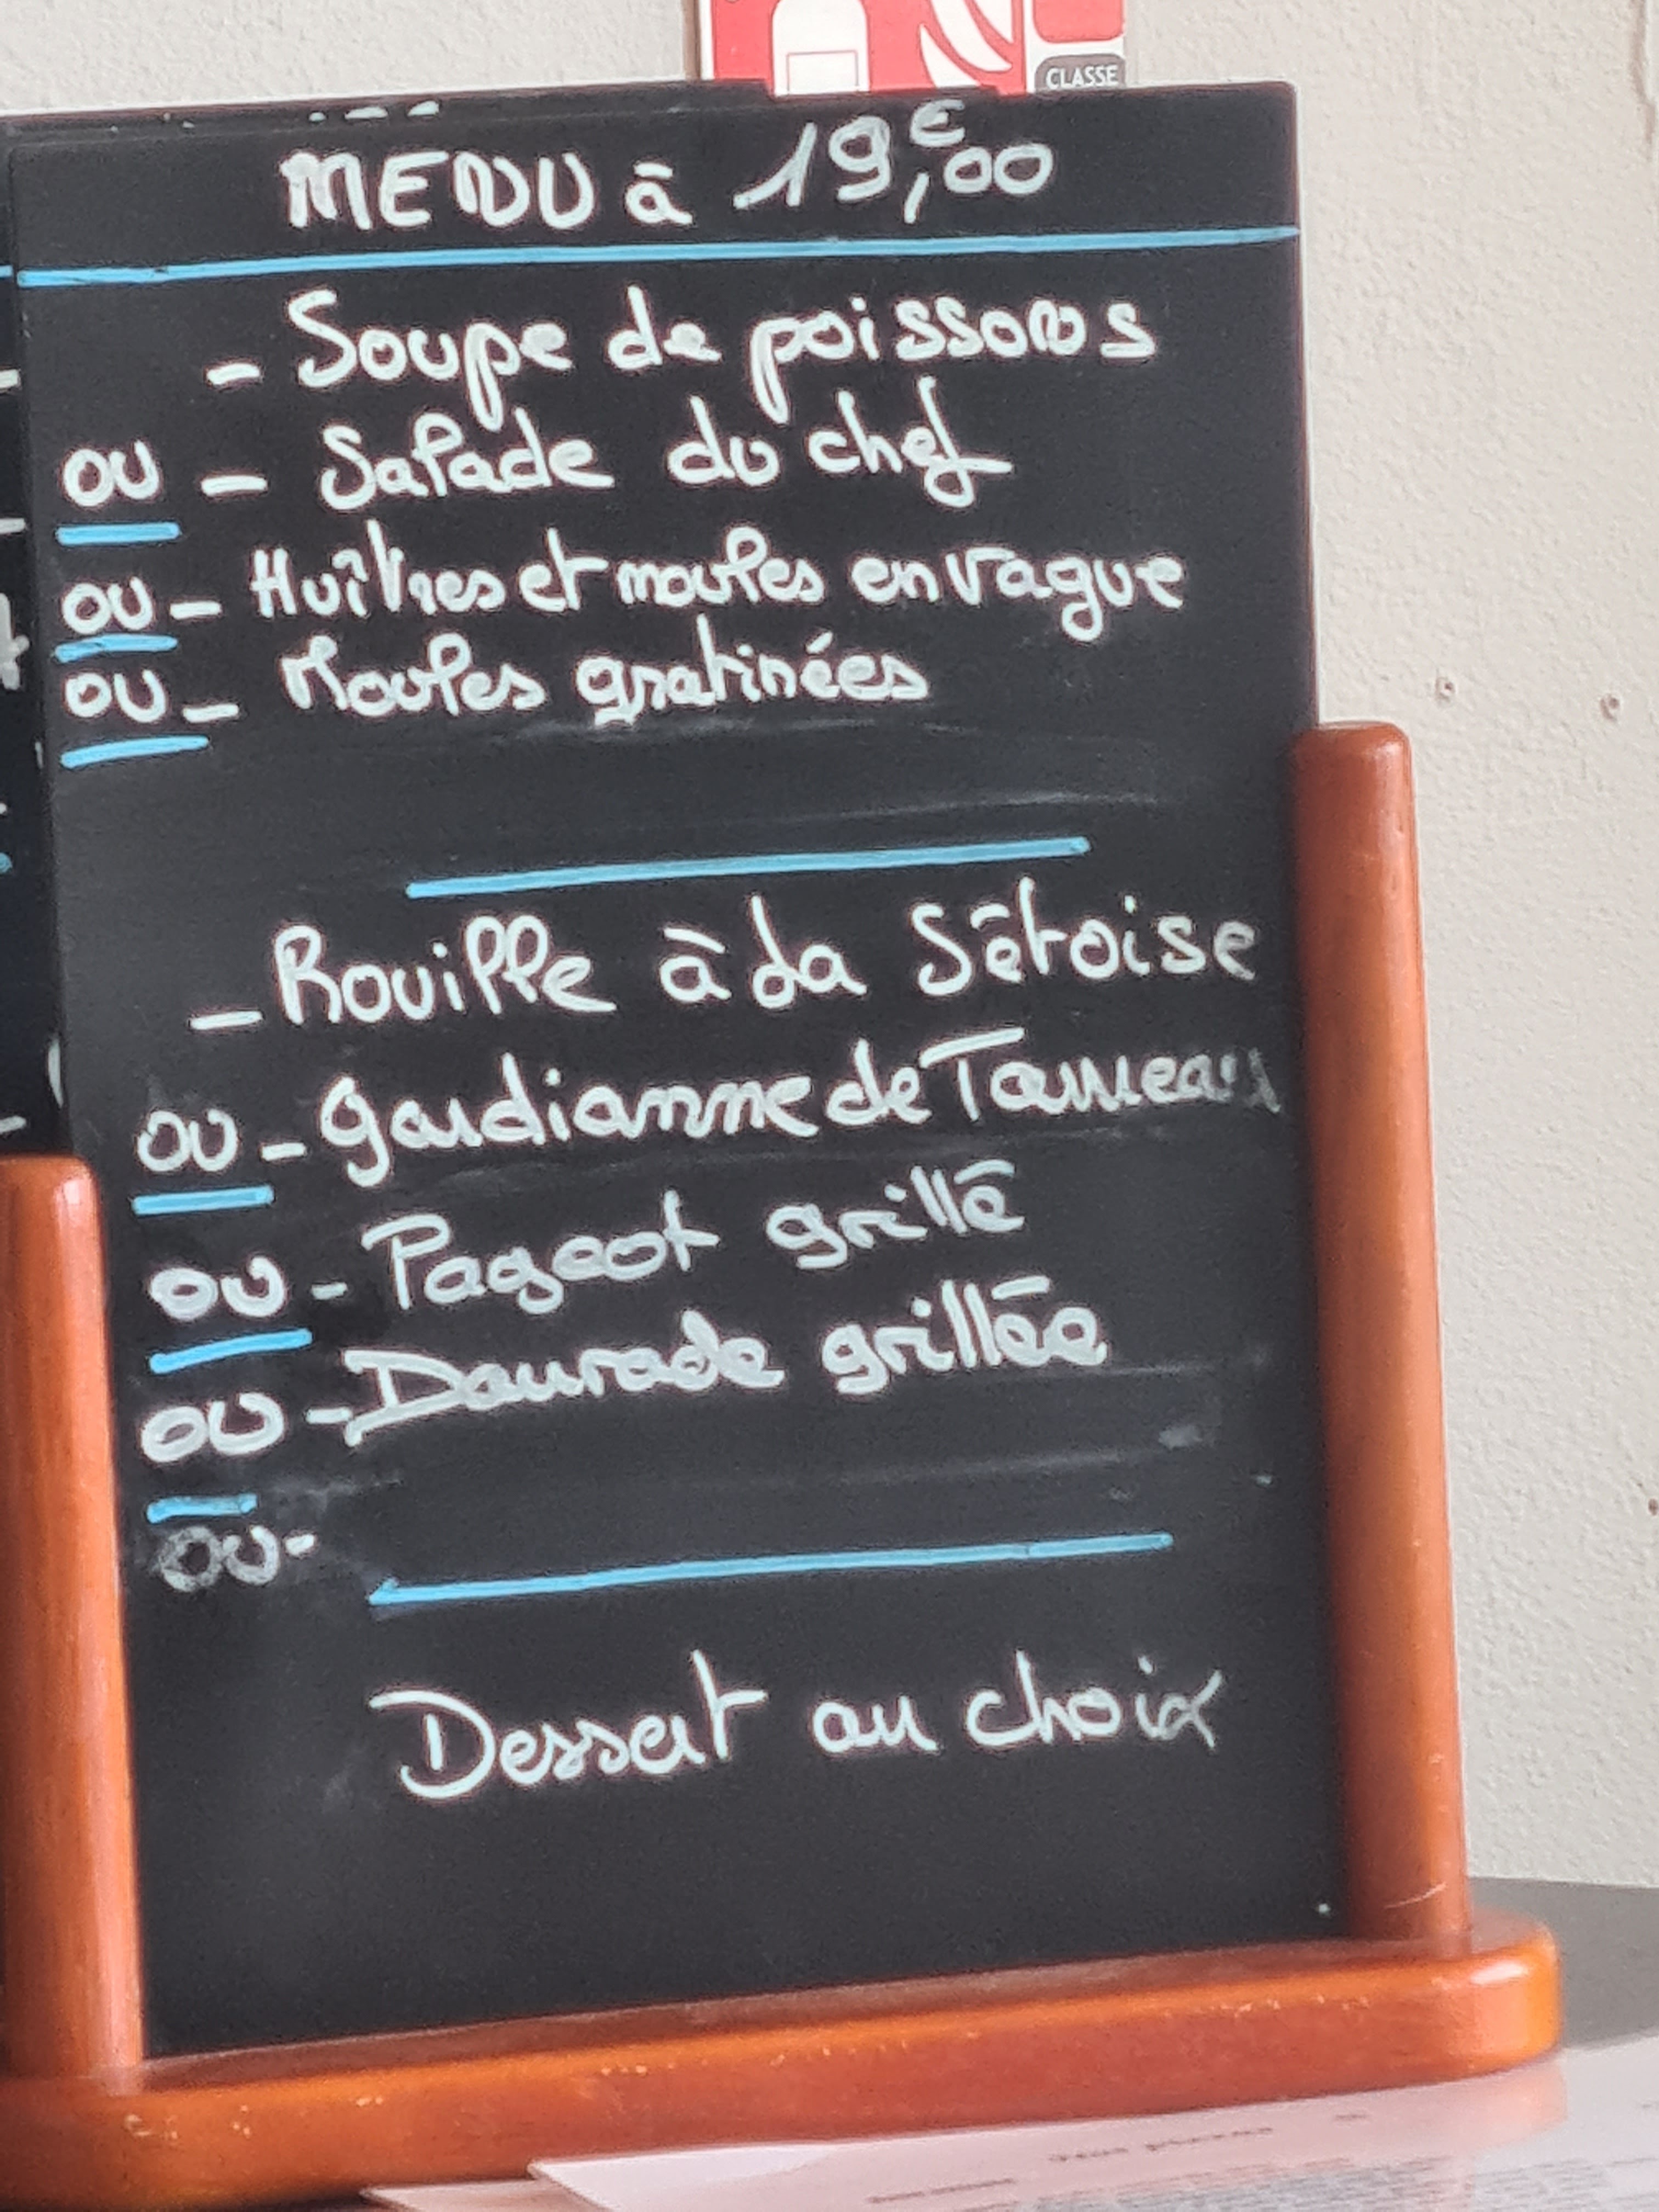 CLASSE
MENU à 19,€00
- Soupe de poissons
ou - Salade du chef
ou - Huîtres et moules en vague
ou - Moules gratinées
- Rouille à la Sétoise
ou - gardianne de Taureau
ou - Pageot grillé
ou - Daurade grillée
ou -
Dessert au choix